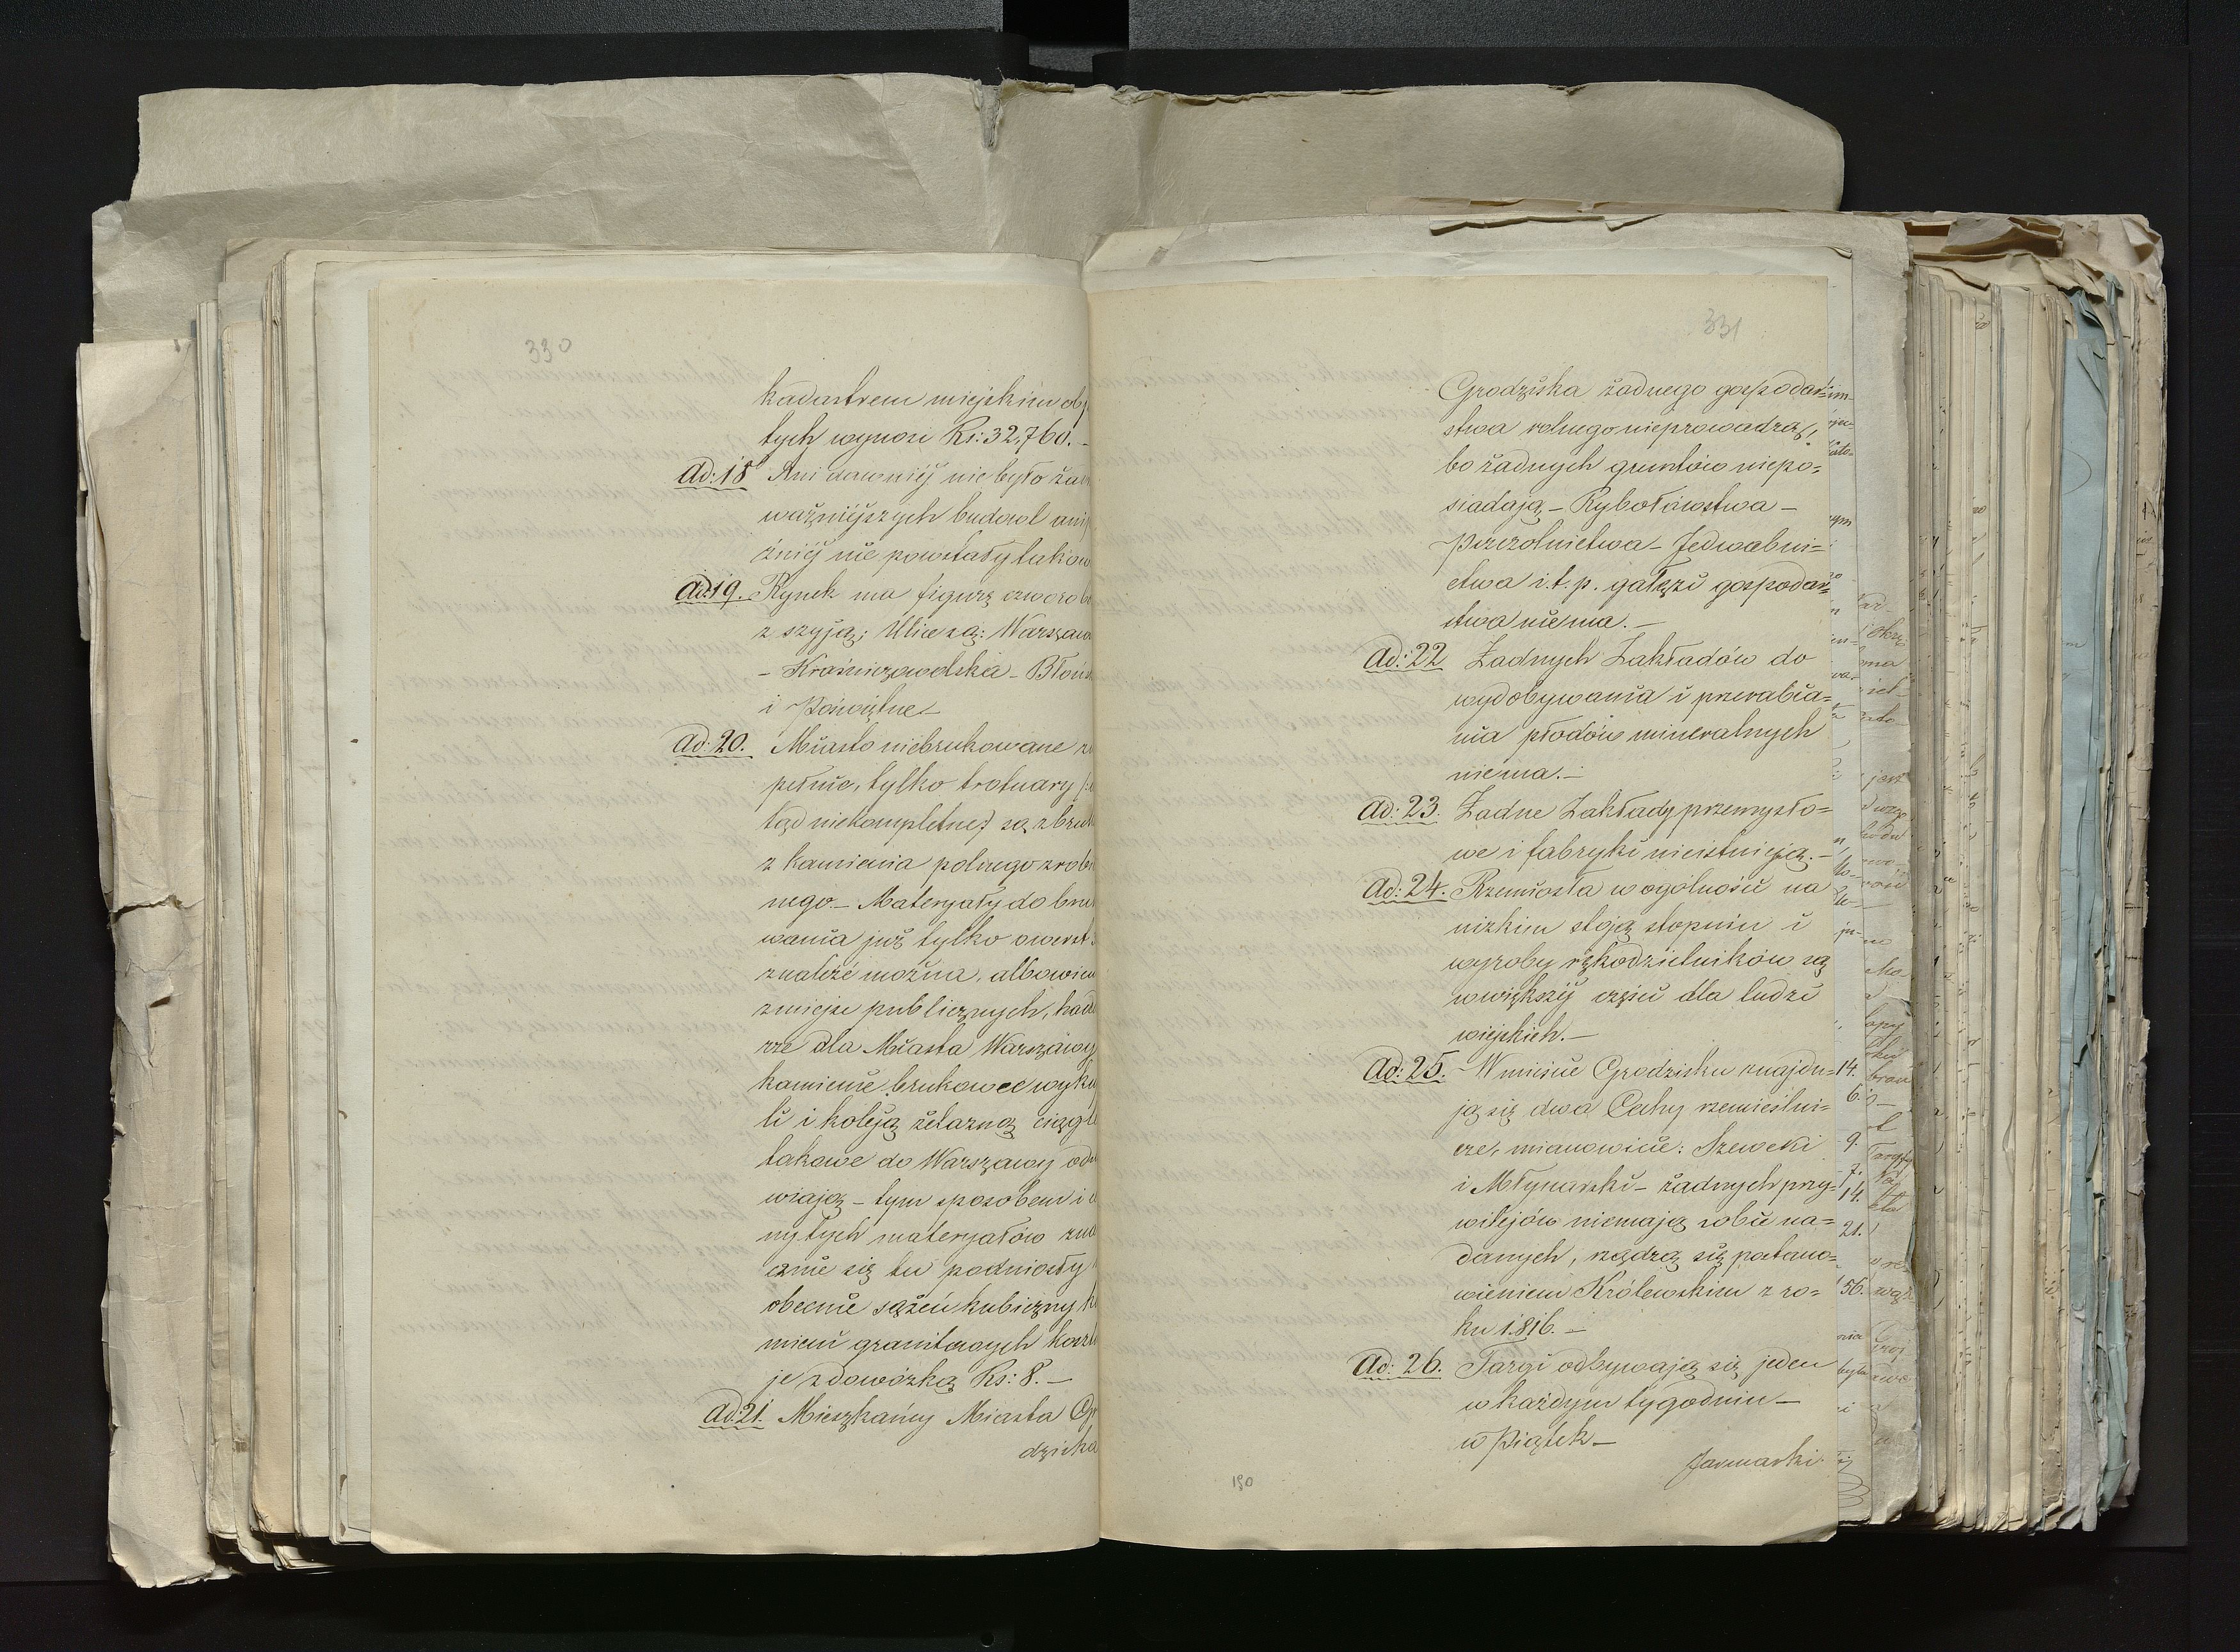 330
kadastrem miejskim obj
tych wynosi Rs: 32,760. –
Ad: 18 Ani dawniéj nie było żad
ważniéjszych budowl ani
źniéj nie powstały takow
Ad: 19. Rynek ma figurę czworob
z szyją; Ulice są: Warszaw
– Kraśniczowolska – Błońs
i Poświętne –
Ad: 20. Miasto niebrukowane zu
pełnie, tylko trotuary
tąd niekompletne) są z bruk
z kamienia polnego zrobi
nego. – Materyały do bru
wania już tylko owerst
znaleźć można, albowiem
zmiejsc publicznych,
rze dla Miasta Warszawy
kamienie brukowec wyku
li i koleją żelazną ciągle
takowe do Warszawy
wiają – tym sposobem i c
ny tych materyałów zna
cznie się tu podniosły
obecnie sążeń kubiczny k
mieni granitowych koszt
je z dowózką Rs: 8. –
Ad: 21. Mieszkańcy Miasta Gr
dziska
331
Grodziska żadnego gospodar=
stwa rolnego nieprowadzą,
bo żadnych gruntów niepo=
siadają – Rybołówstwa –
Pszczolnictwa – Jedwabni=
ctwa i. t. p. gałęzi gospodar=
stwa niema. –
Ad: 22 Żadnych Zakładów do
wydobywania i przerabia=
nia płodów mineralnych
niema. –
Ad: 23. Żadne Zakłady przemysło=
we i fabryki nieistnieją. –
Ad: 24. Rzemiosła w ogólności na
nizkim stoją stopniu i
wyroby rękodzielników są
w większéj części dla ludzi
wiejskich. –
Ad: 25. W mieście Grodzisku znajdu=
ją się dwa Cechy rzemieślni=
cze, mianowicie: Szewcki
i Młynarski – żadnych przy=
wilejów niemają sobie na=
danych, rządzą się postano=
wieniem Królewskim z ro=
ku 1816. –
Ad: 26. Targi odbywają się jeden
w każdym tygodniu –
w Piątek –
Jarmarki
190
14.
6.
9.
7.
14.
21.
56.